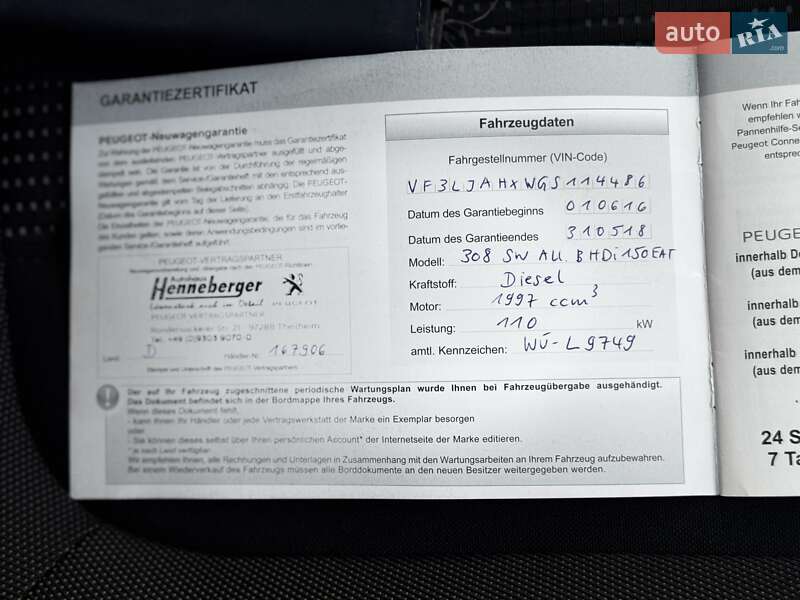 auto RIA.com
GARANTIEZERTIFIKAT
PEUGEOT-Neuwagengarantie
Zur Wahrung der PEUGEOT-Neuwagengarantie muss das Garantiezertifikat
von dem ausliefernden PEUGEOT-Vertragspartner ausgefüllt und abge-
stempelt sein. Die Garantie ist von der Durchführung der regelmäßigen
Wartungen gemäß dem Service-/Garantieheft mit den entsprechend aus-
gefüllten und abgestempelten Belegabschnitten abhängig. Die PEUGEOT-
Neuwagengarantie gilt vom Tag der Lieferung an den Erstfahrzeughalter
(Datum des Garantiebeginns auf dieser Seite).
Die Einzelheiten der PEUGEOT-Neuwagengarantie, die für das Fahrzeug
des Kunden gelten, sowie deren Anwendungsbedingungen sind im vorlie-
genden Service-/Garantieheft aufgeführt.
PEUGEOT-VERTRAGSPARTNER
Autohaus
Henneberger
PEUGEOT
PEUGEOT VERTRAGSPARTNER
97288 Theilheim
Tel. +49 (0)9303 9070-0
Land: D Händler-Nr.: 167906
Stempel und Unterschrift des PEUGEOT-Vertragspartners
Fahrzeugdaten
Fahrgestellnummer (VIN-Code)
VF3LJAHXWGS114486
Datum des Garantiebeginns 010616
Datum des Garantieendes 310518
Modell: 308 SW ALL. BHDi 150 EAT
Kraftstoff: Diesel
Motor: 1997 ccm³
Leistung: 110 kW
amtl. Kennzeichen: WÜ-L9749
Der auf Ihr Fahrzeug zugeschnittene periodische Wartungsplan wurde Ihnen bei Fahrzeugübergabe ausgehändigt.
Das Dokument befindet sich in der Bordmappe Ihres Fahrzeugs.
Wenn dieses Dokument fehlt,
- kann Ihnen Ihr Händler oder jede Vertragswerkstatt der Marke ein Exemplar besorgen
oder
- Sie können dieses selbst über Ihren persönlichen Account* der Internetseite der Marke editieren.
* je nach Land verfügbar.
Wir empfehlen Ihnen, alle Rechnungen und Unterlagen in Zusammenhang mit den Wartungsarbeiten an Ihrem Fahrzeug aufzubewahren.
Bei einem Wiederverkauf des Fahrzeugs müssen alle Borddokumente an den neuen Besitzer weitergegeben werden.
Wenn Ihr Fah
empfehlen w
Pannenhilfe-S
Peugeot Conne
entsprec
PEUGE
innerhalb De
(aus dem
innerhalb
(aus dem
innerhalb
(aus dem
24 S
7 Ta